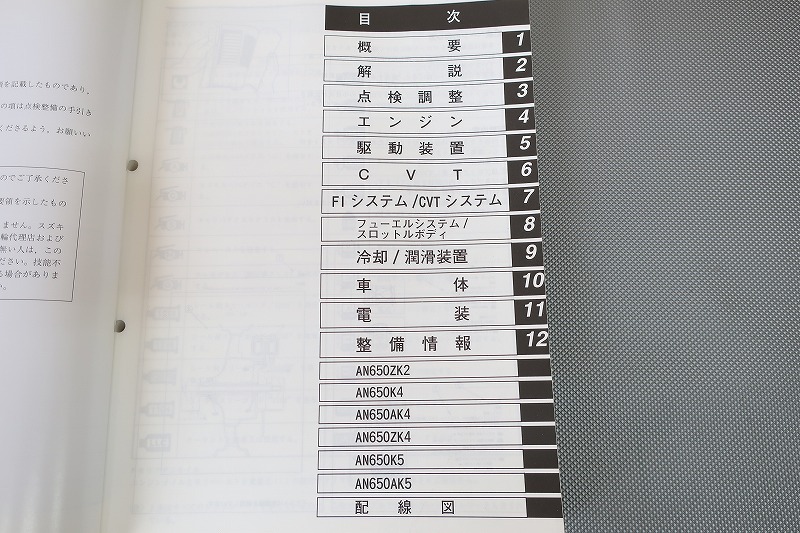 項を記載したものであり、
の項は点検整備の手引き
くださるよう、お願いい
のでご了承くださ
要領を示したもの
ません。スズキ
輪代理店および
無い人は、この
ださい。技能不
る場合がありま
い。
目 次
概 要 1
解 説 2
点 検 調 整 3
エ ン ジ ン 4
駆 動 装 置 5
C V T 6
FI システム /CVT システム 7
フューエルシステム /
スロットルボディ 8
冷却 / 潤滑装置 9
車 体 10
電 装 11
整 備 情 報 12
AN650ZK2
AN650K4
AN650AK4
AN650ZK4
AN650K5
AN650AK5
配 線 図